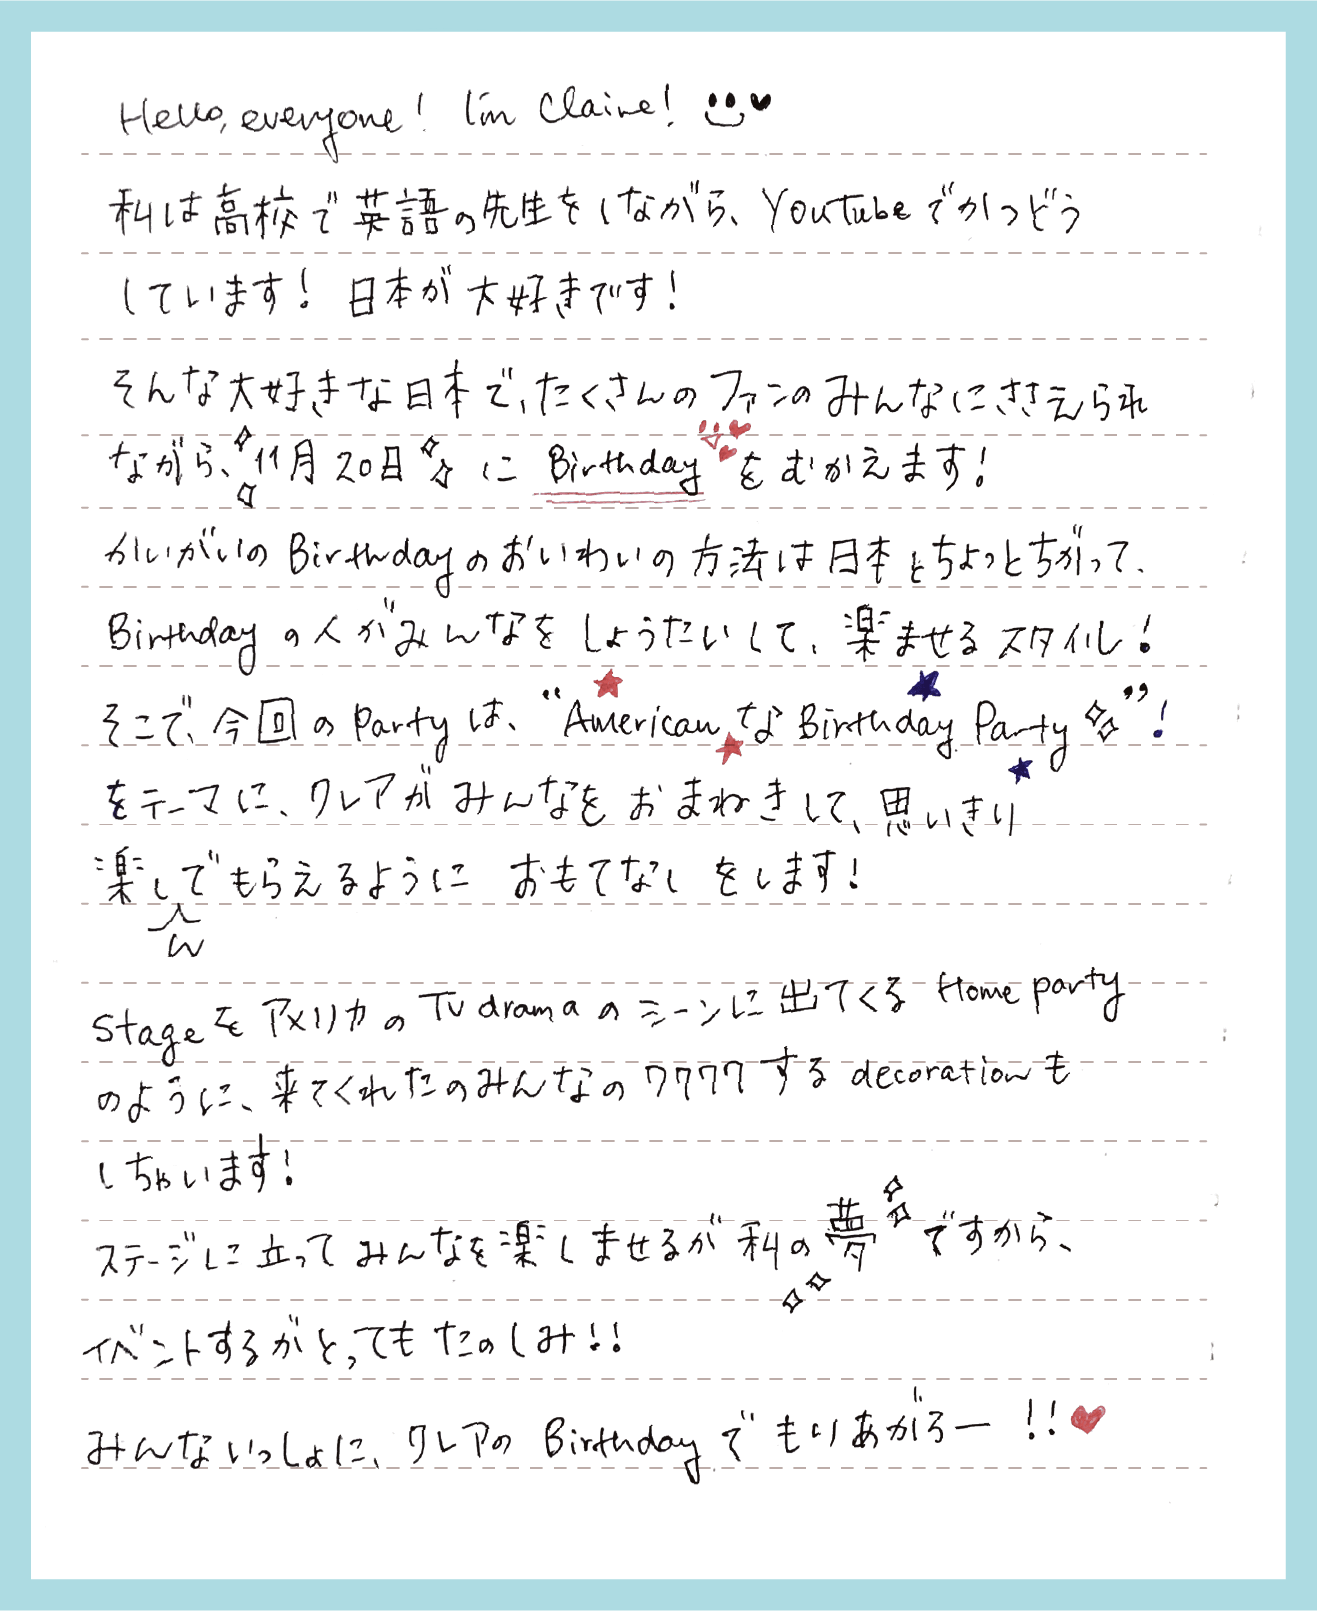 Hello, everyone! I'm Claire!
私は高校で英語の先生をしながら、YouTubeでかつどう
しています! 日本が大好きです!
そんな大好きな日本で、たくさんのファンのみんなにささえられ
ながら、11月20日にBirthdayをむかえます!
かいがいのBirthdayのおいわいの方法は日本とちょっとちがって、
Birthdayの人がみんなをしょうたいして、楽ませるスタイル!
そこで、今回のPartyは、“AmericanなBirthday Party”!
をテーマに、クレアがみんなをおまねきして、思いきり
楽しんでもらえるようにおもてなしをします!
StageをアメリカのTV dramaのシーンに出てくるHome party
のように、来てくれたのみんなのワクワクするdecorationも
しちゃいます!
ステージに立ってみんなを楽しませるが私の夢ですから、
イベントするがとってもたのしみ!!
みんないっしょに、クレアのBirthdayでもりあがろー!!